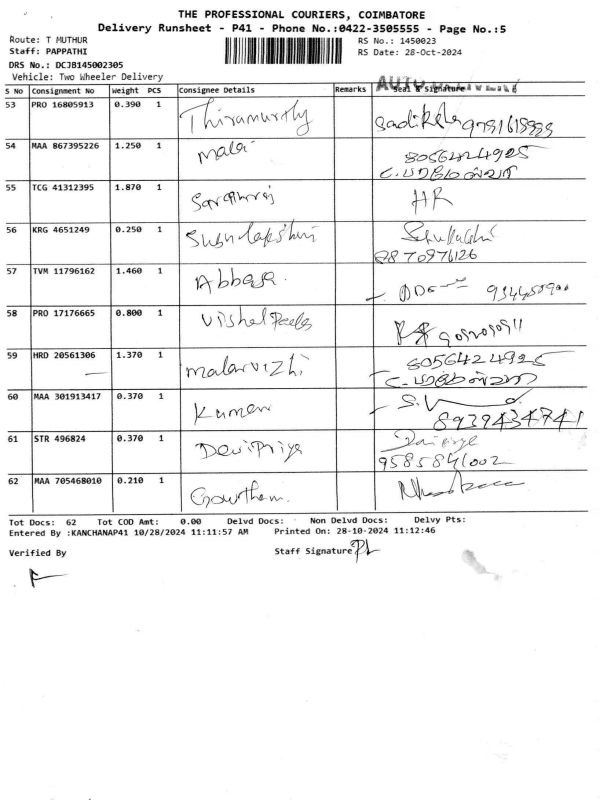 THE PROFESSIONAL COURIERS, COIMBATORE
Delivery Runsheet - P41 - Phone No.:0422-3505555 - Page No.:5
Route: T MUTHUR
RS No.: 1450023
Staff: PAPPATHI
RS Date: 28-Oct-2024
DRS No.: DCJB145002305
Vehicle: Two Wheeler Delivery
AUTO DELIVERY
S No Consignment No Weight PCS Consignee Details Remarks Seal & Signature
53 PRO 16805913 0.390 1 Thiramurthy
54 MAA 867395226 1.250 1 malar 8056424925
55 TCG 41312395 1.870 1 HR
56 KRG 4651249 0.250 1 Subulakshmi 8870976126
57 TVM 11796162 1.460 1 Abbasa.
58 PRO 17176665 0.800 1
59 HRD 20561306 1.370 1 malarvizhi 8056424925
60 MAA 301913417 0.370 1 Kumar 8939434741
61 STR 496824 0.370 1 DeviPriya 9585841002
62 MAA 705468010 0.210 1 Gowtham.
Tot Docs: 62 Tot COD Amt: 0.00 Delvd Docs: Non Delvd Docs: Delvy Pts:
Entered By :KANCHANAP41 10/28/2024 11:11:57 AM Printed On: 28-10-2024 11:12:46
Verified By Staff Signature